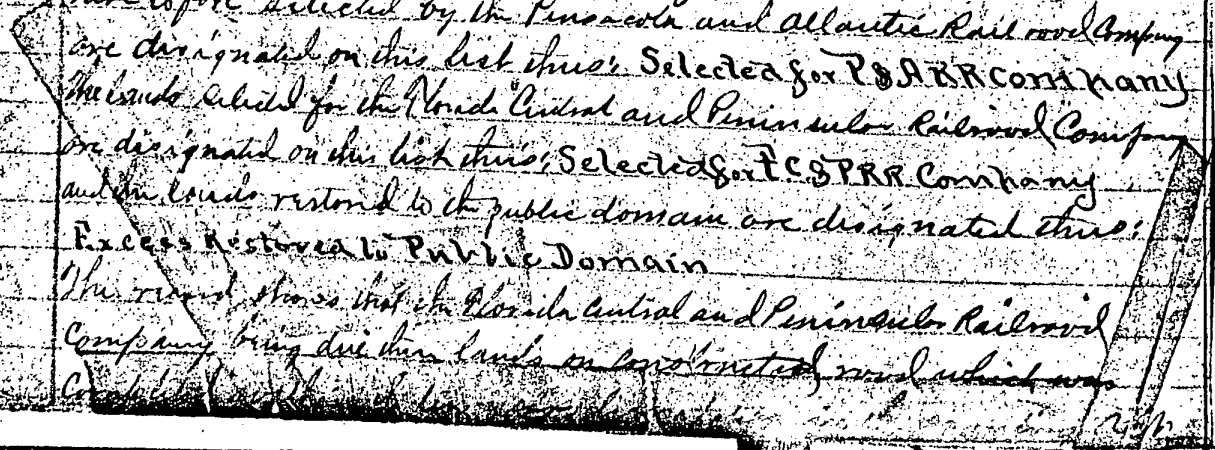 selected by the Pensacola and Atlantic Rail road Company
are designated on this list thus: Selected for P & A RR Company
The lands selected for the Florida Central and Peninsular Railroad Company
are designated on this list thus: Selected for F.C & P RR Company
and the lands restored to the public domain are designated thus:
Excess Restored to Public Domain
The record shows that the Florida Central and Peninsular Railroad
Company being due them lands on constructed road which was